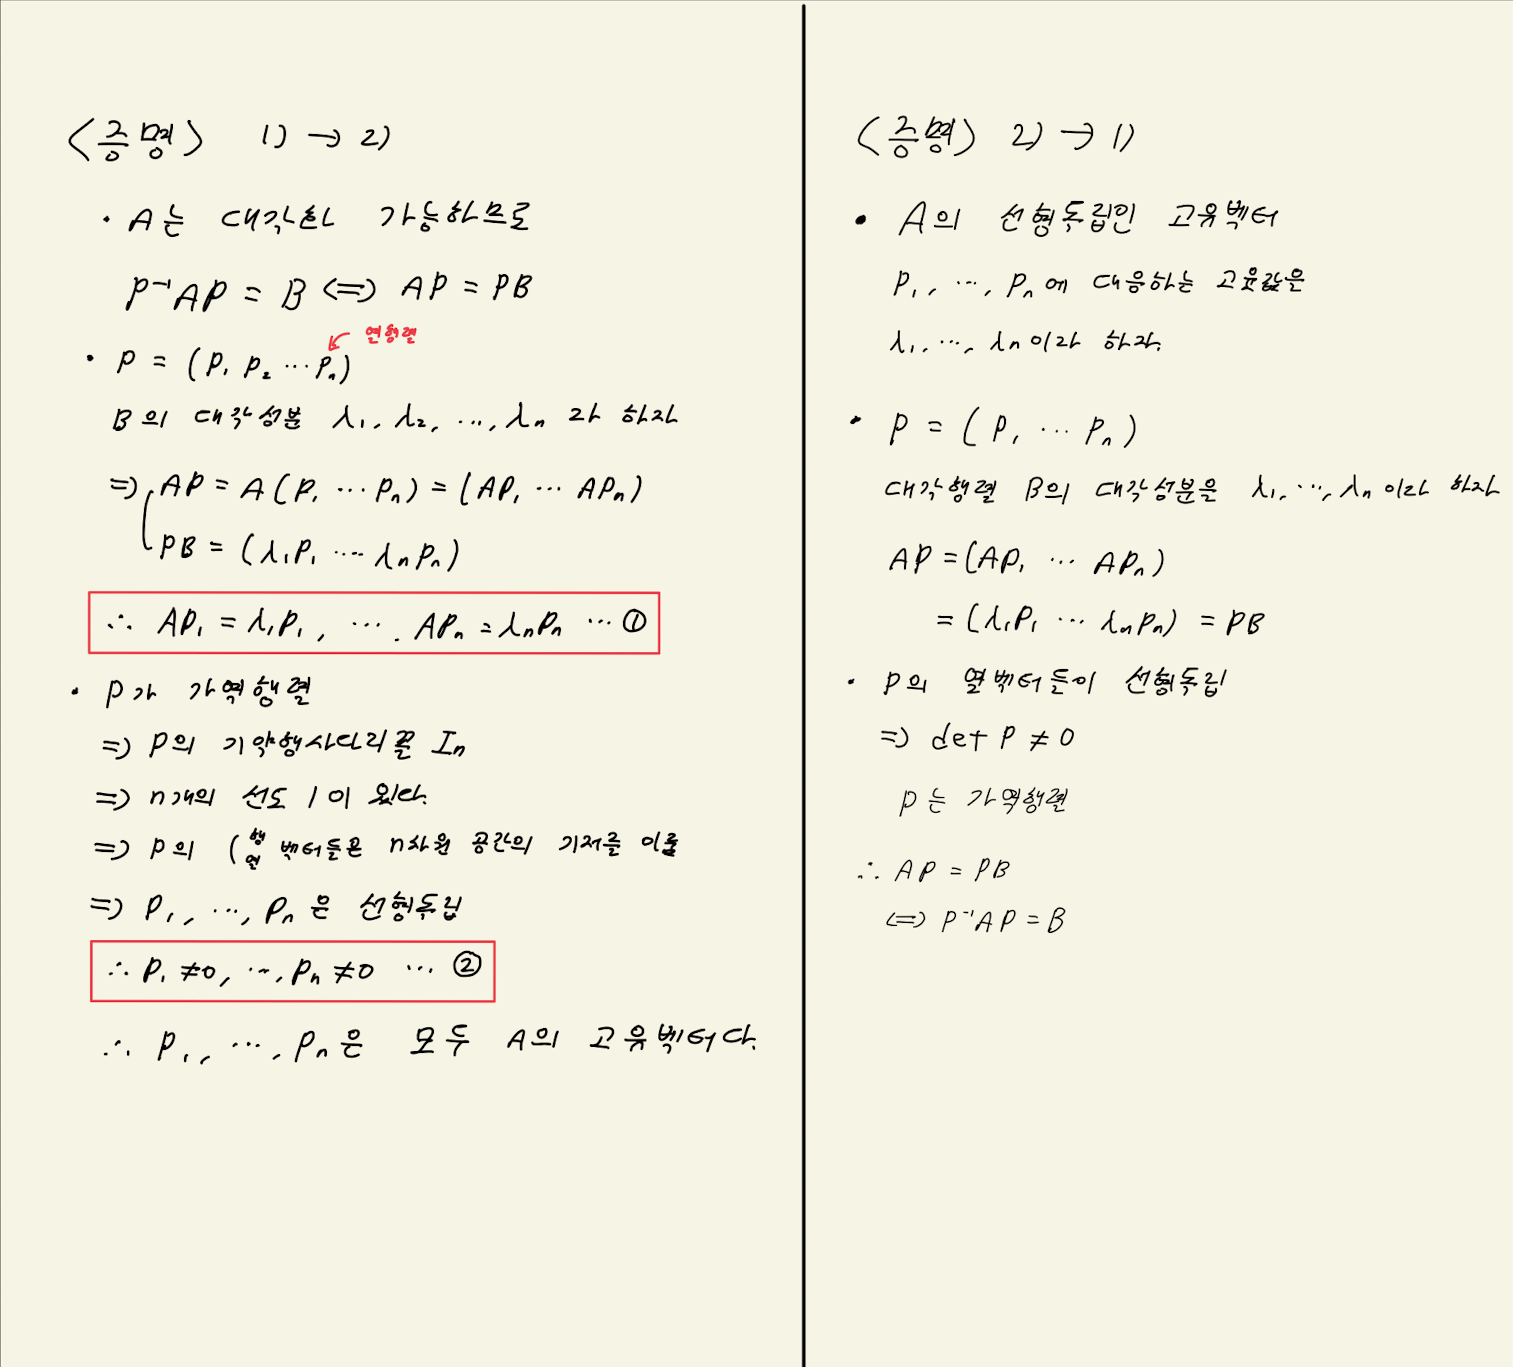 <증명> 1) → 2)
· A는 대각화 가능하므로
P⁻¹AP = B ⇔ AP = PB
열행렬
· P = (P₁ P₂ ⋯ Pₙ)
B의 대각성분 λ₁, λ₂, ⋯, λₙ 라 하자
⇒ AP = A(P₁ ⋯ Pₙ) = (AP₁ ⋯ APₙ)
PB = (λ₁P₁ ⋯ λₙPₙ)
∴ AP₁ = λ₁P₁, ⋯ , APₙ = λₙPₙ ⋯ ①
· P가 가역행렬
⇒ P의 기약행사다리꼴 Iₙ
⇒ n개의 선도 1이 있다.
⇒ P의 ( 행 열 벡터들은 n차원 공간의 기저를 이룸
⇒ P₁, ⋯, Pₙ은 선형독립
∴ P₁ ≠ 0, ⋯, Pₙ ≠ 0 ⋯ ②
∴ P₁, ⋯, Pₙ은 모두 A의 고유벡터다.
<증명> 2) → 1)
· A의 선형독립인 고유벡터
P₁, ⋯, Pₙ에 대응하는 고윳값은
λ₁, ⋯, λₙ이라 하자.
· P = (P₁ ⋯ Pₙ)
대각행렬 B의 대각성분을 λ₁, ⋯, λₙ이라 하자
AP = (AP₁ ⋯ APₙ)
= (λ₁P₁ ⋯ λₙPₙ) = PB
· P의 열벡터들이 선형독립
⇒ det P ≠ 0
P는 가역행렬
∴ AP = PB
⇔ P⁻¹AP = B